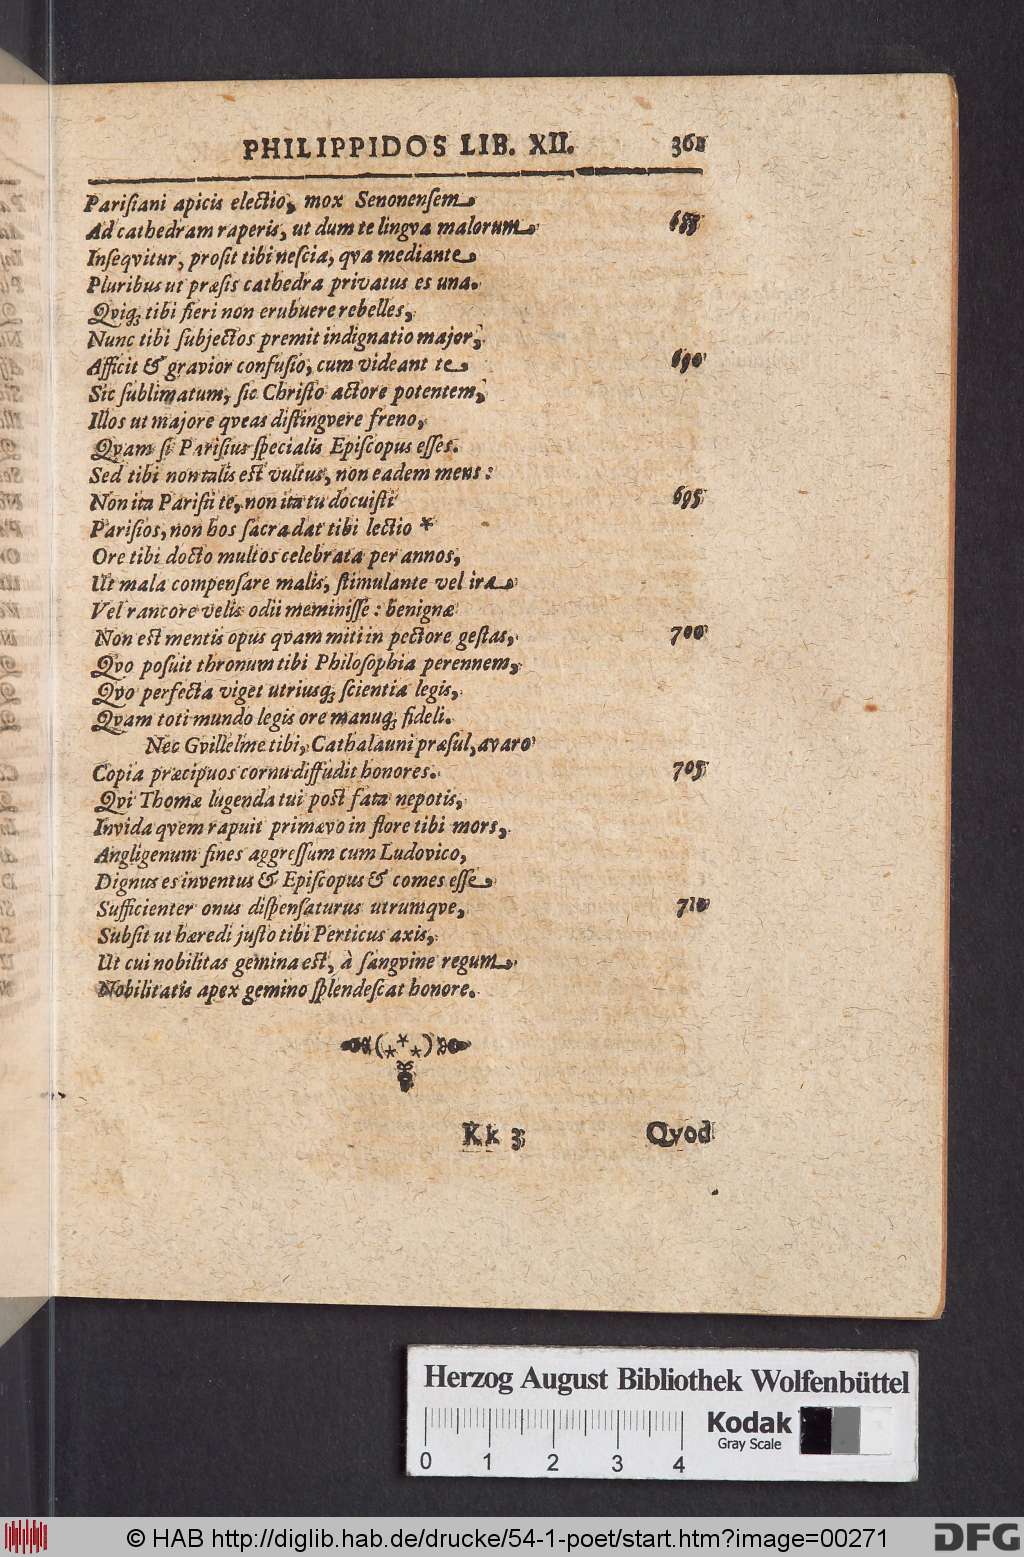 PHILIPPIDOS LIB. XII. 361
Pariſiani apicis electio, mox Senonenſem
Ad cathedram raperis, ut dum te lingva malorum 685
Inſeqvitur, proſit tibi neſcia, qva mediante
Pluribus ut præſis cathedra privatus es una.
Qviq; tibi fieri non erubuere rebelles,
Nunc tibi ſubjectos premit indignatio major,
Afficit & gravior confuſio, cum videant te 690
Sic ſublimatum, ſic Chriſto actore potentem,
Illos ut majore qveas diſtingvere freno,
Qvam ſi Pariſius ſpecialis Epiſcopus eſſes.
Sed tibi non talis eſt vultus, non eadem mens:
Non ita Pariſii te, non ita tu docuiſti 695
Pariſios, non hos ſacra dat tibi lectio *
Ore tibi docto multos celebrata per annos,
Ut mala compenſare malis, ſtimulante vel ira
Vel rancore velis odii meminiſſe: benignæ
Non eſt mentis opus qvam miti in pectore geſtas, 700
Qvo poſuit thronum tibi Philoſophia perennem,
Qvo perfecta viget utriusq; ſcientia legis,
Qvam toti mundo legis ore manuq; fideli.
Nec Gvillelme tibi, Cathalauni præſul, avaro
Copia præcipuos cornu diffudit honores. 705
Qvi Thomæ lugenda tui poſt fata nepotis,
Invida qvem rapuit primævo in flore tibi mors,
Angligenum fines aggreſſum cum Ludovico,
Dignus es inventus & Epiſcopus & comes eſſe
Sufficienter onus diſpenſaturus utrumqve, 710
Subſit ut hæredi juſto tibi Perticus axis,
Ut cui nobilitas gemina eſt, à ſangvine regum
Nobilitatis apex gemino ſplendeſcat honore.
(***)
Kk 3 Qvod
Herzog August Bibliothek Wolfenbüttel
0 1 2 3 4
Kodak
Gray Scale
© HAB http://diglib.hab.de/drucke/54-1-poet/start.htm?image=00271
DFG